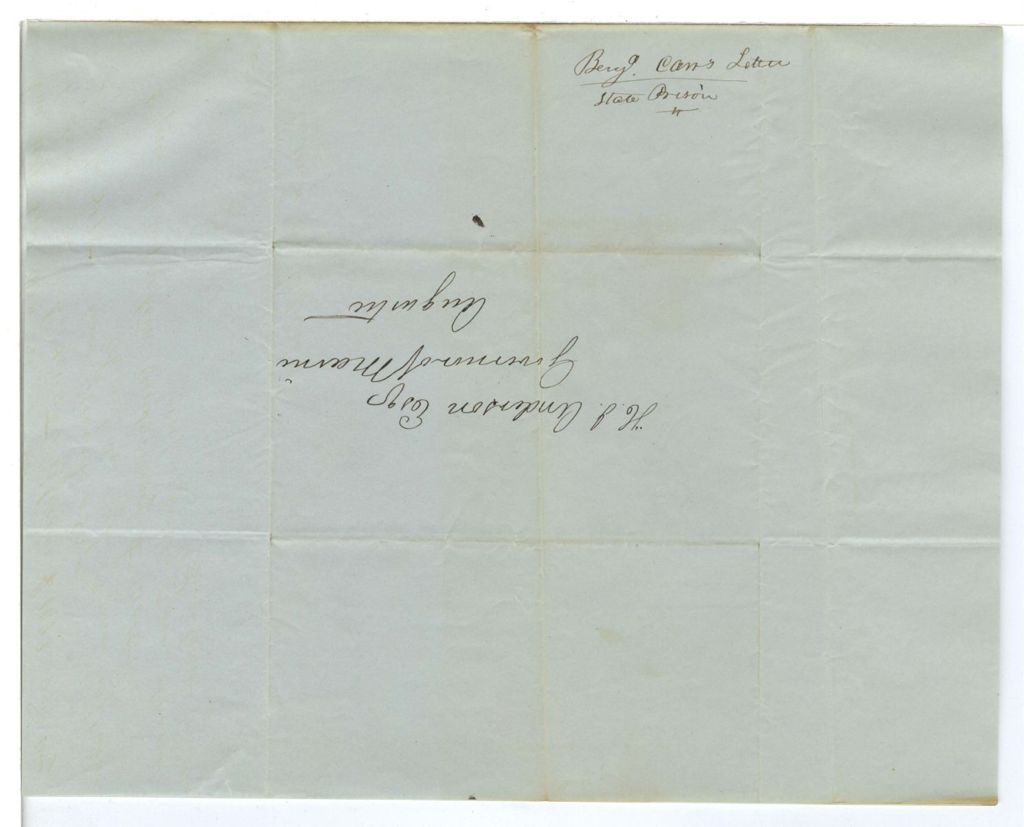 Benj. Carr's Letter
State Prison
H. J. Anderson Esqr
Governor of Maine
Augusta